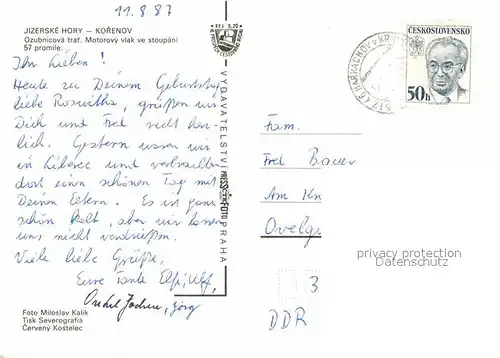 11.8.87
JIZERSKÉ HORY — KOŘENOV
Ozubnicová trať. Motorový vlak ve stoupání
57 promile.
Ihr Lieben!
Heute zu Deinem Geburtstag
liebe Roswitha, grüßen wir
Dich und Fred recht herz-
lich. Gestern waren wir
in Liberec und verbrachten
dort einen schönen Tag mit
Deinen Eltern. Es ist ganz
schön kalt, aber wir lassen
uns nicht verdrießen.
Viele liebe Grüße,
Eure Tante Elfi, Ulf,
Onkel Jochen, Jörg
Foto Miloslav Kalík
Tisk Severografia
Červený Kostelec
KčS 0,20
VYDAVATELSTVÍ PRESSFOTO PRAHA
HARRACHOV
ČESKOSLOVENSKO
50h
Fam.
Fred Bauer
Am Kn
Ovelg
privacy protection
Datenschutz
3
DDR